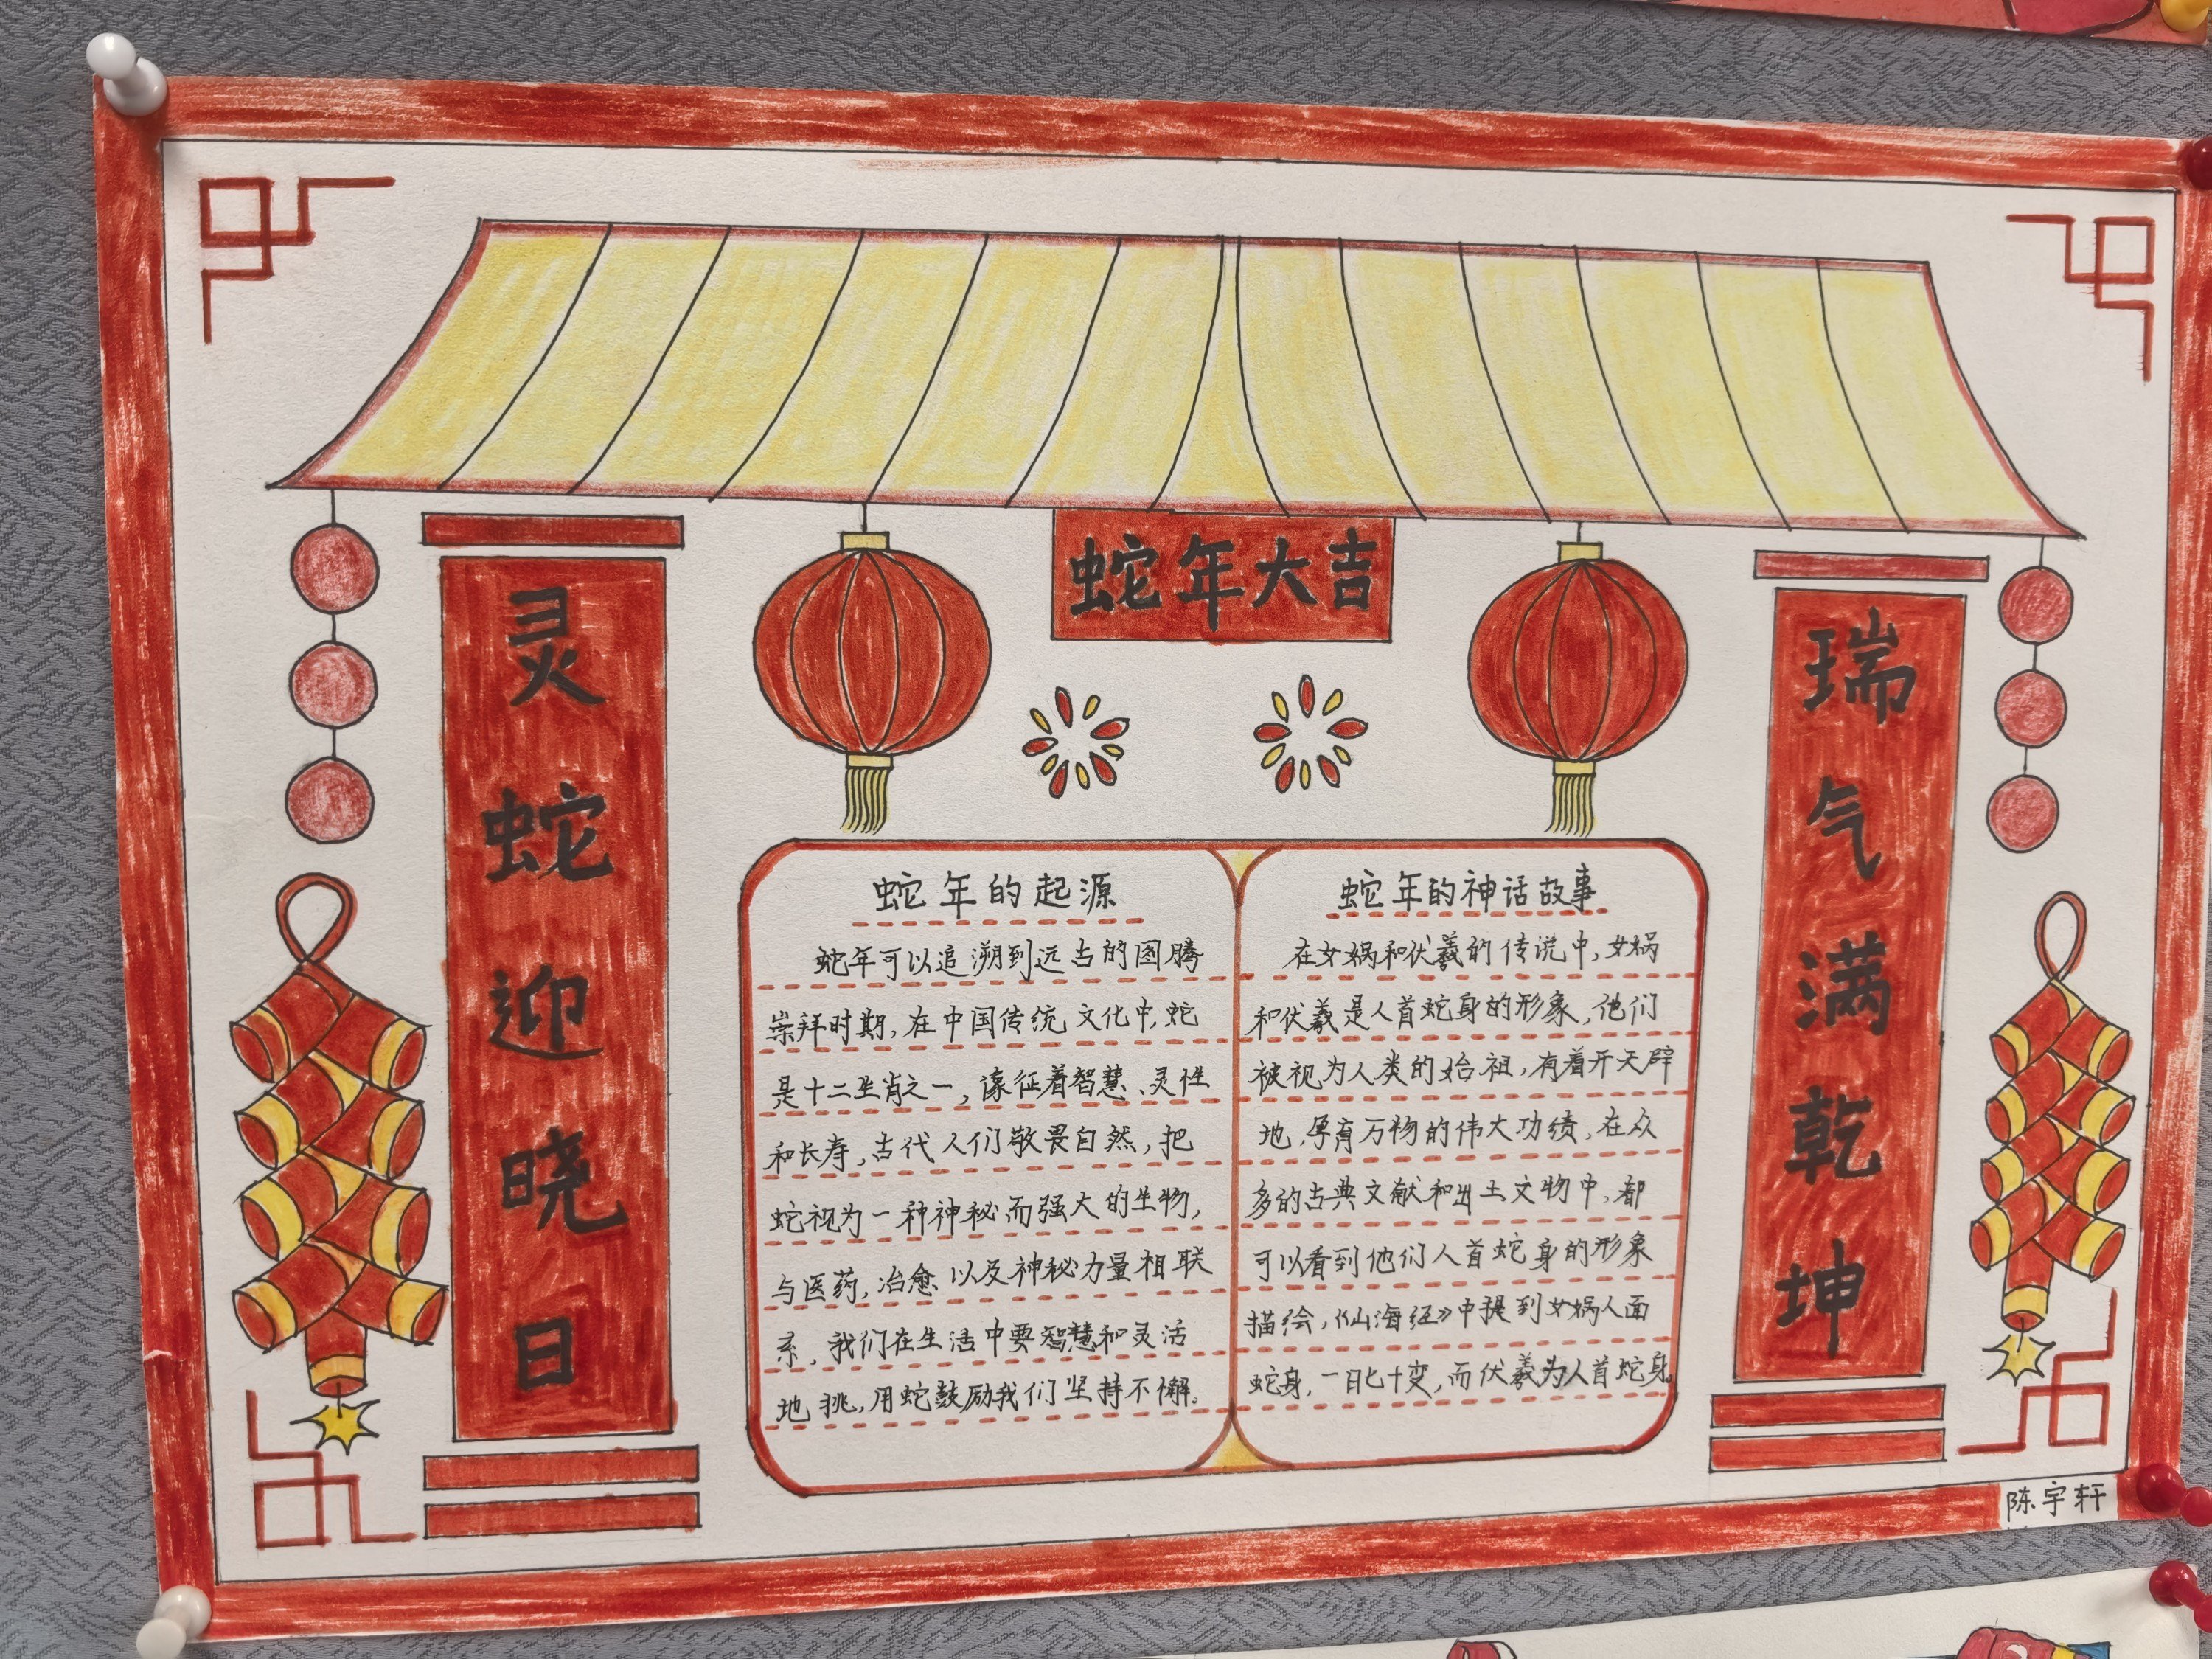 蛇年大吉
灵蛇迎晓日
瑞气满乾坤
蛇年的起源
蛇年可以追溯到远古的图腾
崇拜时期,在中国传统文化中,蛇
是十二生肖之一,像征着智慧、灵性
和长寿,古代人们敬畏自然,把
蛇视为一种神秘而强大的生物,
与医药,治愈以及神秘力量相联
系,我们在生活中要智慧和灵活
地挑,用蛇鼓励我们坚持不懈。
蛇年的神话故事
在女娲和伏羲的传说中,女娲
和伏羲是人首蛇身的形象,他们
被视为人类的始祖,有着开天辟
地,孕育万物的伟大功绩,在众
多的古典文献和出土文物中,都
可以看到他们人首蛇身的形象
描绘,《山海经》中提到女娲人面
蛇身,一日七十变,而伏羲为人首蛇身。
陈宇轩